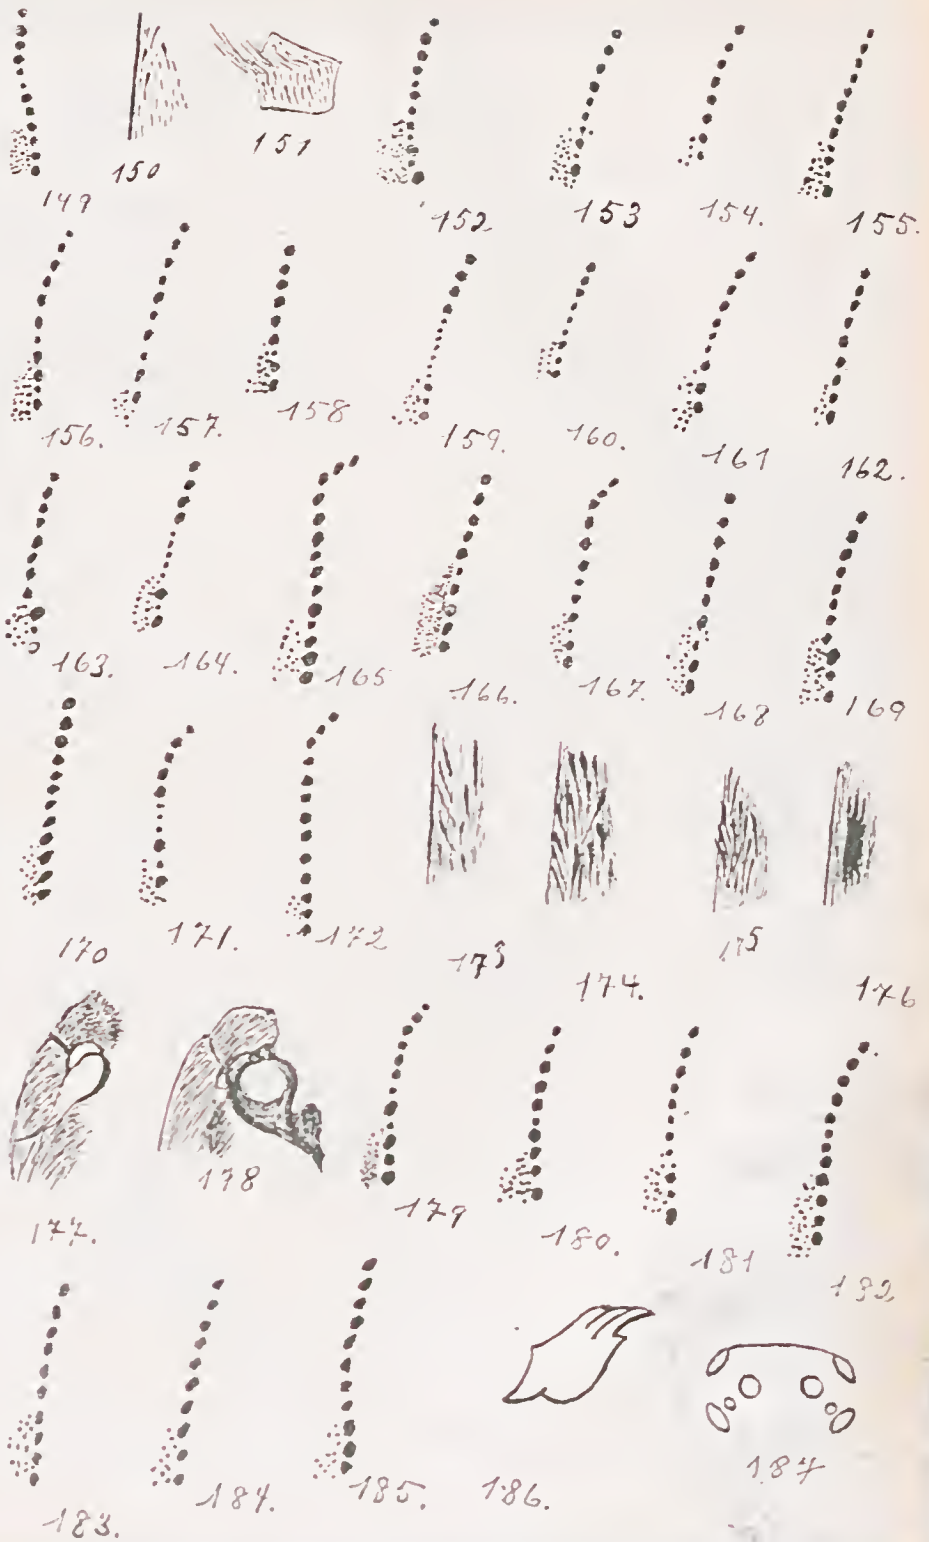 149
150
151
152
153
154.
155.
156.
157.
158
159.
160.
161
162.
163.
164.
165
166.
167.
168
169
170
171.
172
173
174.
175
176
177.
178
179
180.
181
182
183.
184.
185.
186.
187